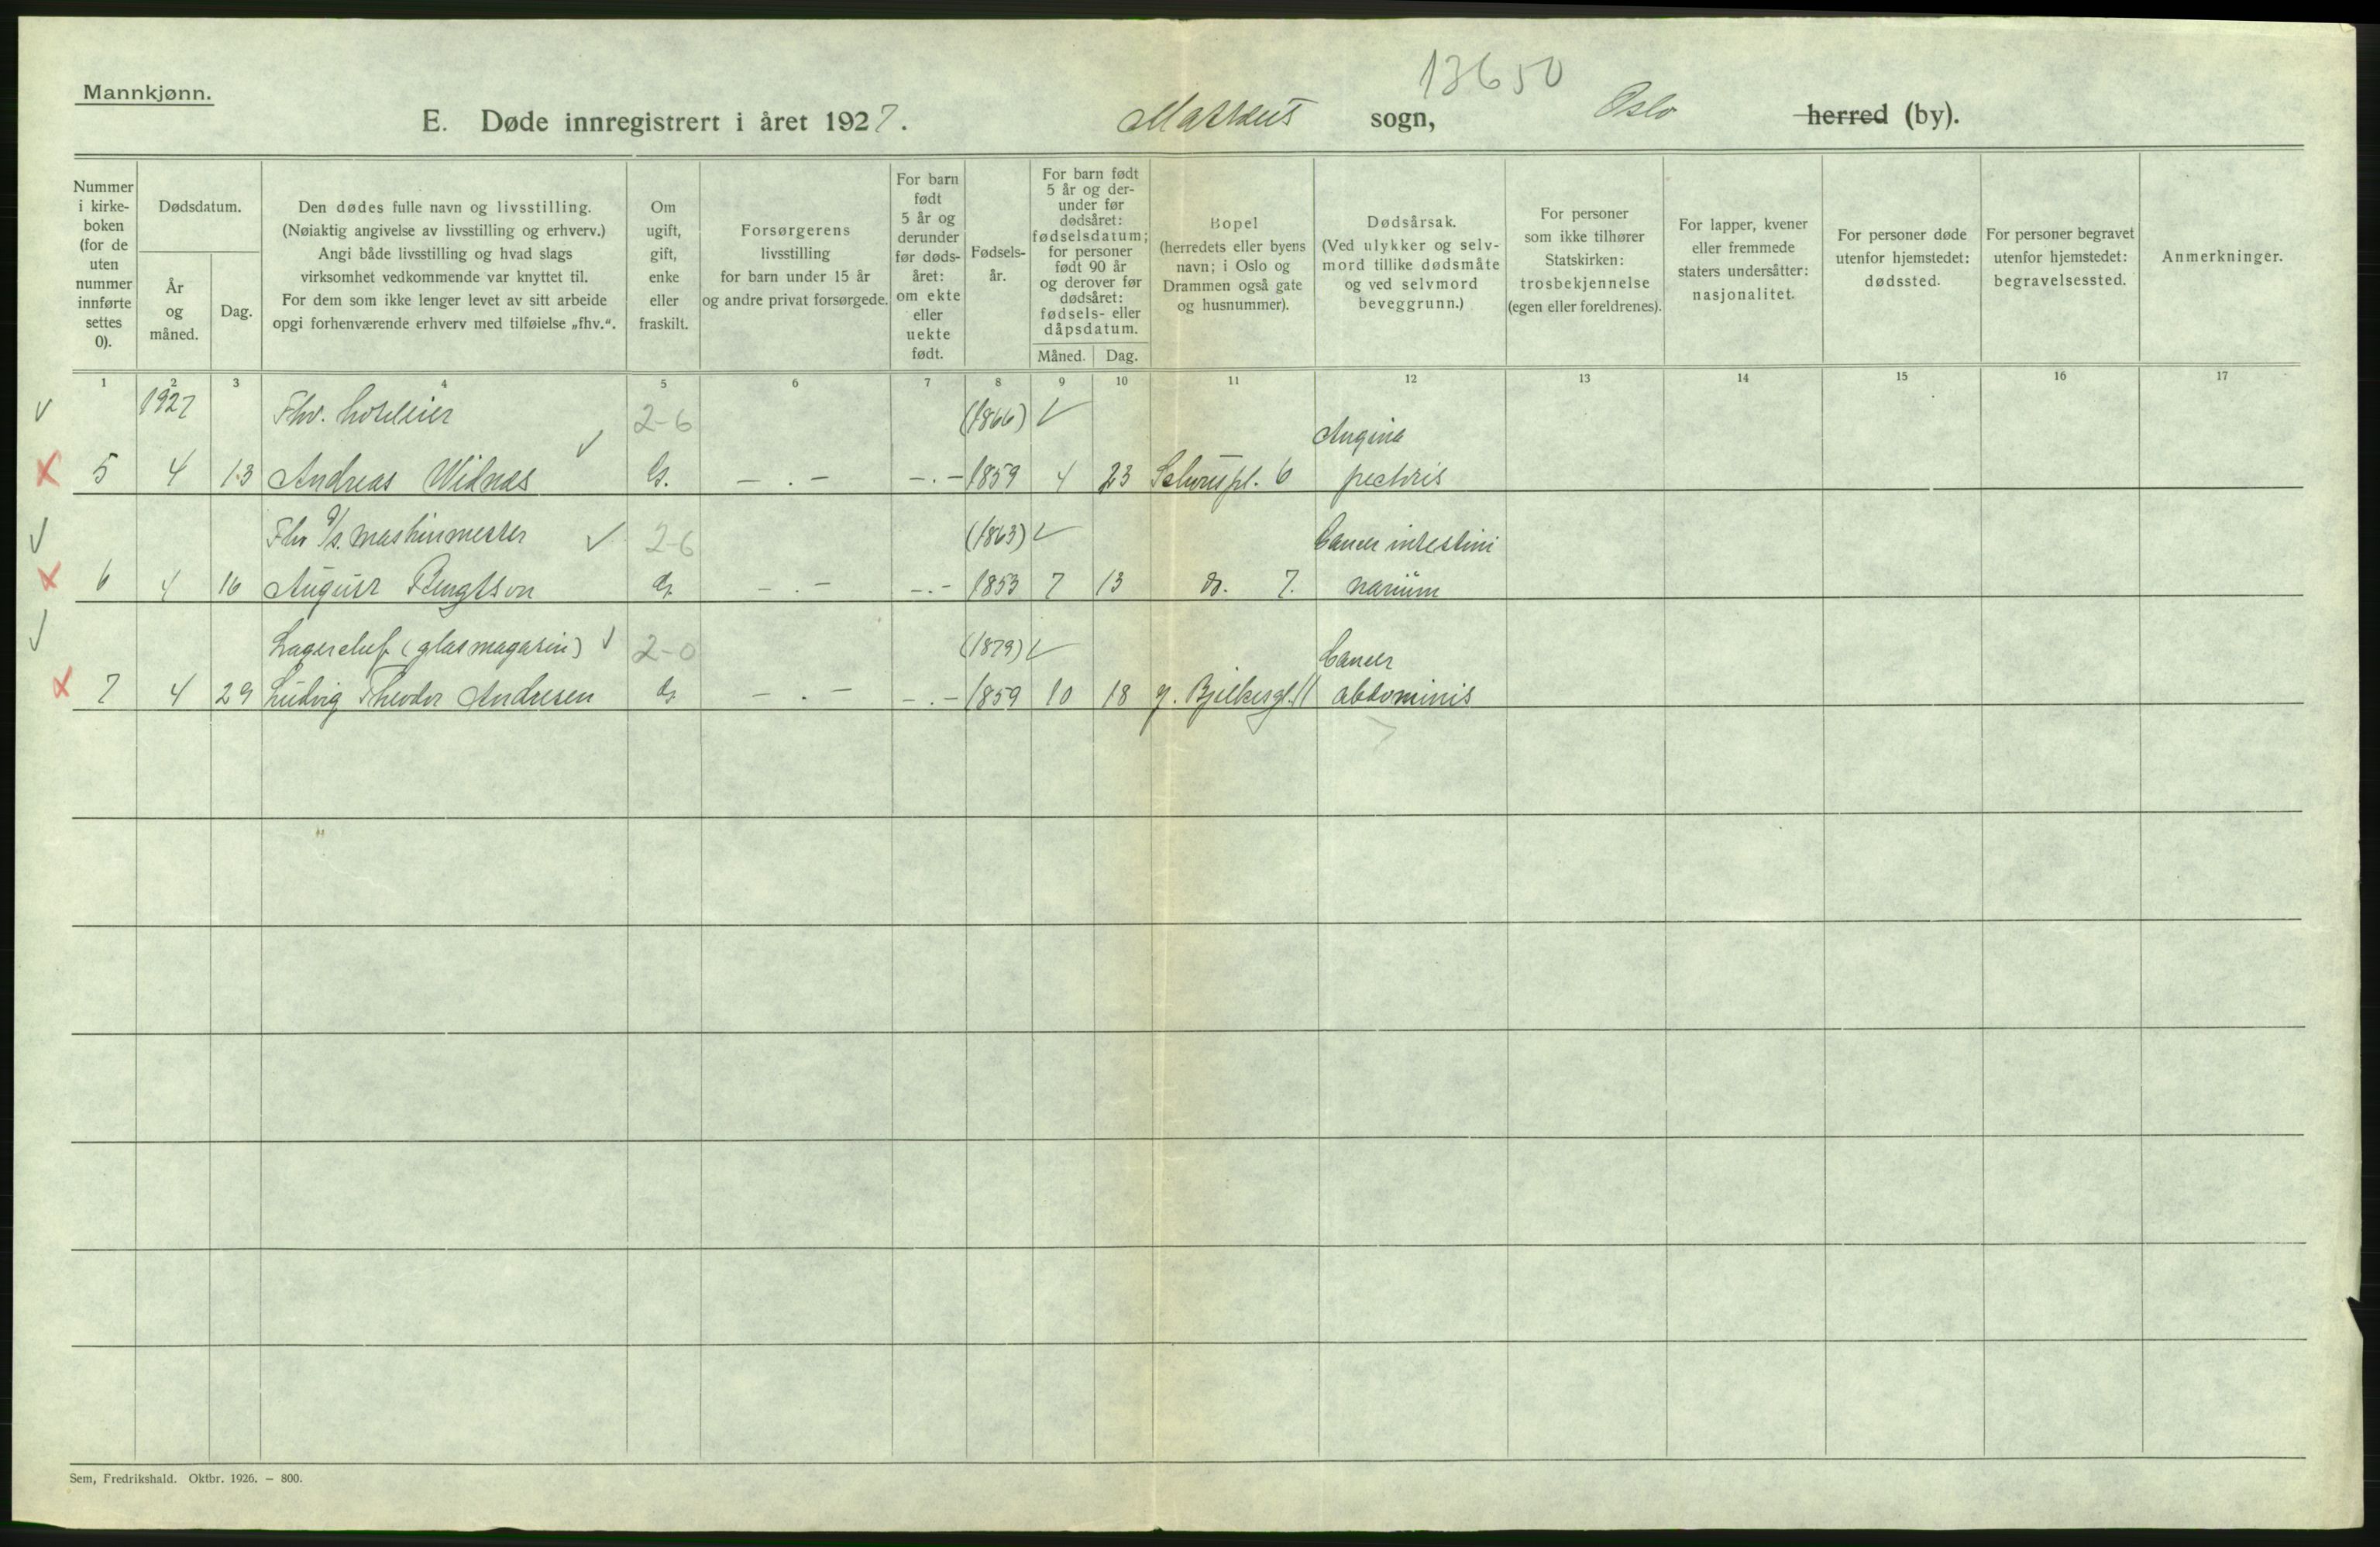 Mannkjønn.
13650
E. Døde innregistrert i året 1927. Markus sogn, Oslo herred (by).
Nummer i kirke-boken (for de uten nummer innførte settes 0).
Dødsdatum.
År og måned.
Dag.
Den dødes fulle navn og livsstilling.
(Nøiaktig angivelse av livsstilling og erhverv.)
Angi både livsstilling og hvad slags
virksomhet vedkommende var knyttet til.
For dem som ikke lenger levet av sitt arbeide
opgi forhenværende erhverv med tilføielse „fhv.“.
Om ugift, gift, enke eller fraskilt.
Forsørgerens
livsstilling
for barn under 15 år
og andre privat forsørgede.
For barn født 5 år og derunder før døds-året: om ekte eller uekte født.
Fødsels-år.
For barn født
5 år og der-
under før
dødsåret:
fødselsdatum;
for personer
født 90 år
og derover før
dødsåret:
fødsels- eller
dåpsdatum.
Måned. Dag.
Bopel
(herredets eller byens
navn; i Oslo og
Drammen også gate
og husnummer).
Dødsårsak.
(Ved ulykker og selv-
mord tillike dødsmåte
og ved selvmord
beveggrunn.)
For personer
som ikke tilhører
Statskirken:
trosbekjennelse
(egen eller foreldrenes).
For lapper, kvener
eller fremmede
staters undersåtter:
nasjonalitet.
For personer døde
utenfor hjemstedet:
dødssted.
For personer begravet
utenfor hjemstedet:
begravelsessted.
Anmerkninger.
1 2 3 4 5 6 7 8 9 10 11 12 13 14 15 16 17
1927 Fhv. hotelleier 2-6 (1866) Angina
5 4 13 Andreas Widnes G. - . - - . - 1859 4 23 Schouspl. 6 pectoris
Fhv s/s. maskinmester 2-6 (1863) Cancer intestini
6 4 16 August Bengtson do. - . - - . - 1853 7 13 do. 7. narium
Lagerchef (glasmagasin) 2-0 (1879) Cancer
7 4 29 Ludvig Theodor Andresen do. - . - - . - 1859 10 18 J. Bjelkesgt. 11 abdominis
Sem, Fredrikshald. Oktbr. 1926. — 800.